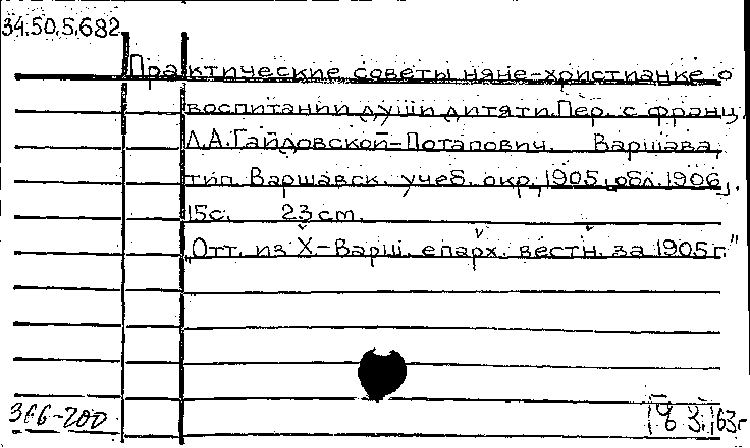 34.50.5.682
Практические советы няне-христианке о
воспитании души дитяти. Пер. с франц.
Л.А.Гайдовской-Потапович. Варшава,
тип. Варшавск. учеб. окр., 1905, обл. 1906,.
15с. 23 см.
"Отт. из Х.-Варш. епарх. вестн. за 1905 г."
366-200
63г